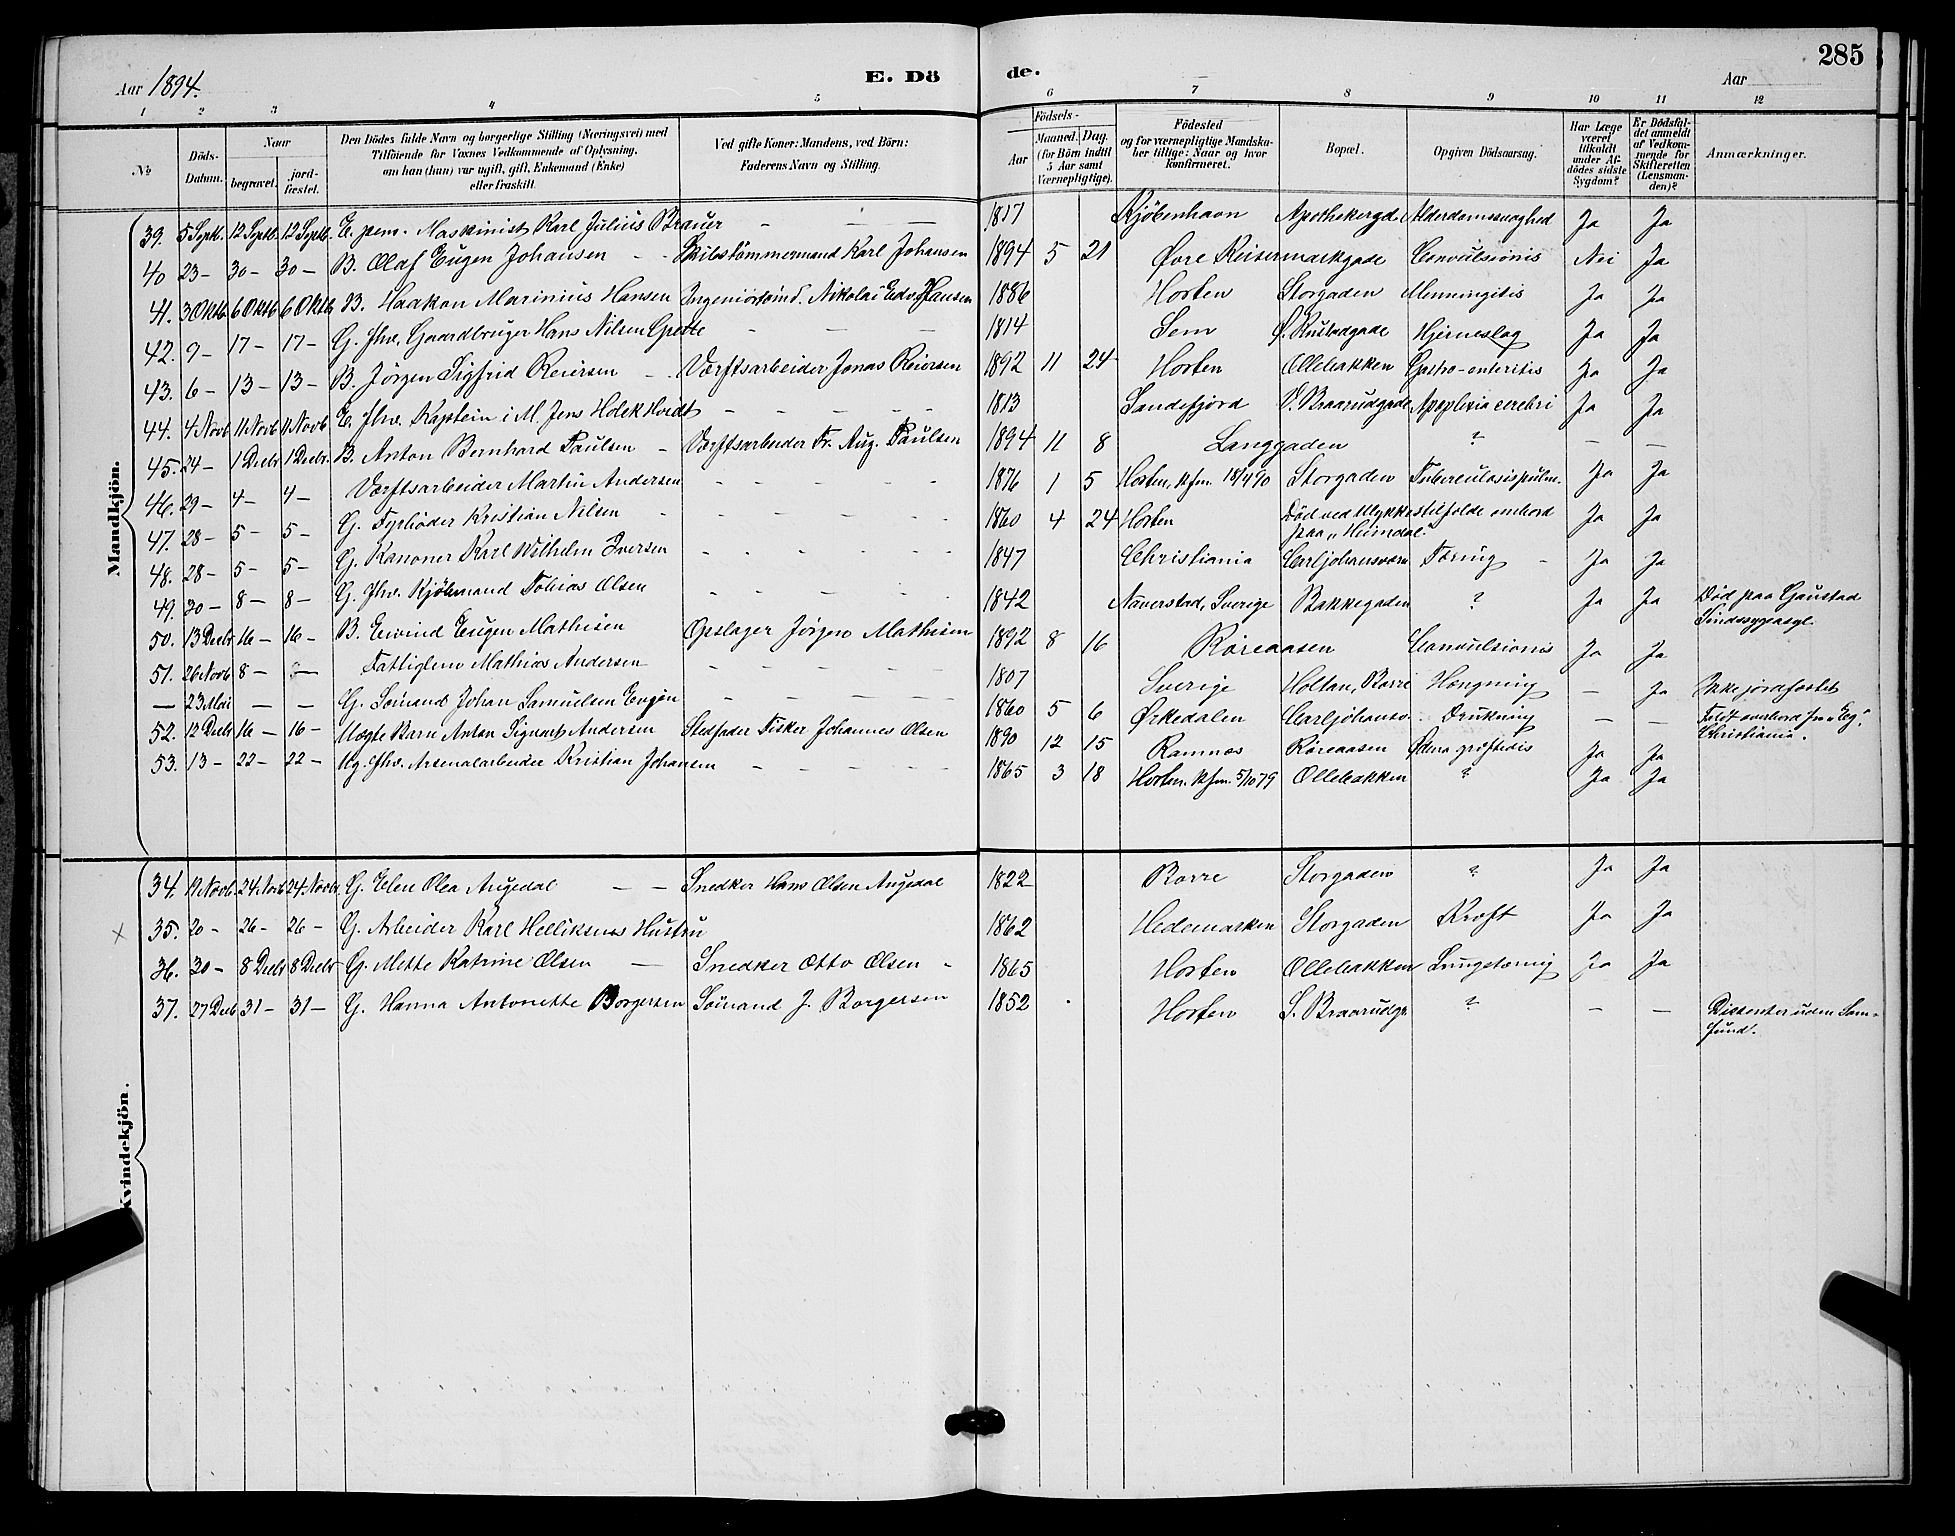 285
Aar 1894. E. Dö de. Aar
1 2 3 4 5 6 7 8 9 10 11 12
No
Döds-Datum.
Naar
begravet.
jord-fæstet.
Den Dödes fulde Navn og borgerlige Stilling (Næringsvei) med
Tilföiende for Voxnes Vedkommende af Oplysning,
om han (hun) var ugift, gift, Enkemand (Enke)
eller fraskilt.
Ved gifte Koner: Mandens, ved Börn:
Faderens Navn og Stilling.
Födsels-
Aar
Maaned. Dag.
(for Börn indtil
5 Aar samt
Værnepligtige).
Födested
og for værnepligtige Mandska-
ber tillige: Naar og hvor
konfirmeret.
Bopæl.
Opgiven Dödsaarsag.
Har Læge
været
tilkaldt
under Af-
dödes sidste
Sygdom?
Er Dödsfal-
det anmeldt
af Vedkom-
mende for
Skifteretten
(Lensman-
den)?
Anmærkninger.
Mandkjön.
39. 5 Septb. 12 Septb. 12 Septb. E. pens. Maskinist Karl Julius Brauer — — 1817 Kjöbenhavn Apothekergd. Alderdomssvaghed Ja Ja
40 23 — 30 — 30 — B. Olaf Eugen Johansen - - Skibstömmermand Karl Johansen 1894 5 21 Övre Keisermarkgade Convulsionis Nei Ja
41. 3 Oktb. 6 Oktb. 6 Oktb. B. Haakon Marinius Hansen Nikolai Edv. Hansen 1886 Horten Storgaden Menningitis Ja Ja
42. 9 — 17 — 17 — G. fhv. Gaardbruger Hans Nilsen Grette — — — 1814 Sem Hjerneslag Ja Ja
43. 6 — 13 — 13 — B. Jörgen Sigfrid Reiersen - - Værftsarbeider Jonas Reiersen 1892 11 24 Horten Ollebakken Gastro-enteritis Ja Ja
44. 4 Novb 11 Novb 11 Novb E. fhv. Kaptein i M. Jens Holck Hvidt — — — 1813 Sandefjord V. Braarudgade Apoplexia cerebri Ja Ja
45. 24 — 1 Decbr 1 Decbr. B. Anton Bernhard Paulsen - Værftsarbeider Fr. Aug. Paulsen 1894 11 8 Langgaden ? — —
46. 29 — 4 — 4 — Værftsarbeider Martin Andersen - - - 1876 1 5 Horten, kfm. 18/4 90 Storgaden Tuberculosis pulm. Ja Ja
47. 28 — 5 — 5 — G. Fyrböder Kristian Nilsen - - - 1860 4 24 Horten Död ved Ulykkestilfælde ombord
paa „Heimdal“ Ja Ja
48. 28 — 5 — 5 — G. Kanoner Karl Wilhelm Iversen - - - 1847 Christiania Carljohansværn Tæring - Ja Ja
49. 30 — 8 — 8 — G. fhv. Kjöbmand Tobias Olsen - - - 1842 Naverstad, Sverige Bakkegaden ? Ja Ja Död paa Gaustad
Sindssygeasyl.
50. 13 Decbr 16 — 16 — B. Eivind Eugen Mathisen Opslager Jörgen Mathisen 1892 8 16 Röreaasen Convulsionis Ja Ja
51. 26 Novb 8 — Fattiglem Mathias Andersen — — — 1807 Sverige Holtan, Borre Hængning — Ja Ikke jordfæstet
— 23 Mai — — G. Sömand Johan Samuelsen — — — 1860 5 6 Örkedalen Carljohansv. Drukning — — Faldt overbord fra
Christiania.
52. 12 Decbr 16 — 16 — Uægte Barn Anton Andersen Stedfader Fisker Johannes Olsen 1890 12 15 Ramnæs Röreaasen Ja Ja
53. 13 — 22 — 22 — Ug. fhv. Arsenalarbeider Kristian Johansen — — — 1865 3 18 Horten. kfm. 5/10 79 Ollebakken ? Ja Ja
Kvindekjön.
34. 19 Novb. 24 Novb 24. Novbr. G. Elen Olea Augedal — — Snedker Hans Olsen Augedal 1822 Borre Storgaden ? Ja Ja
× 35. 20 — 26 — 26 — G. Arbeider Karl Helliksens Hustru 1862 Hedemarken Storgaden Kræft Ja Ja
36. 30 — 8 Decbr 8 Decbr G. Mette Katrine Olsen — Snedker Otto Olsen - 1865 Horten Ollebakken Lungetæring Ja Ja
37. 27 Decb 31 — 31 — G. Hanna Antonette Borgersen Sömand J. Borgersen 1852 Horten S. Braarudgt. ? — — Dissenter uden Sam-
fund.